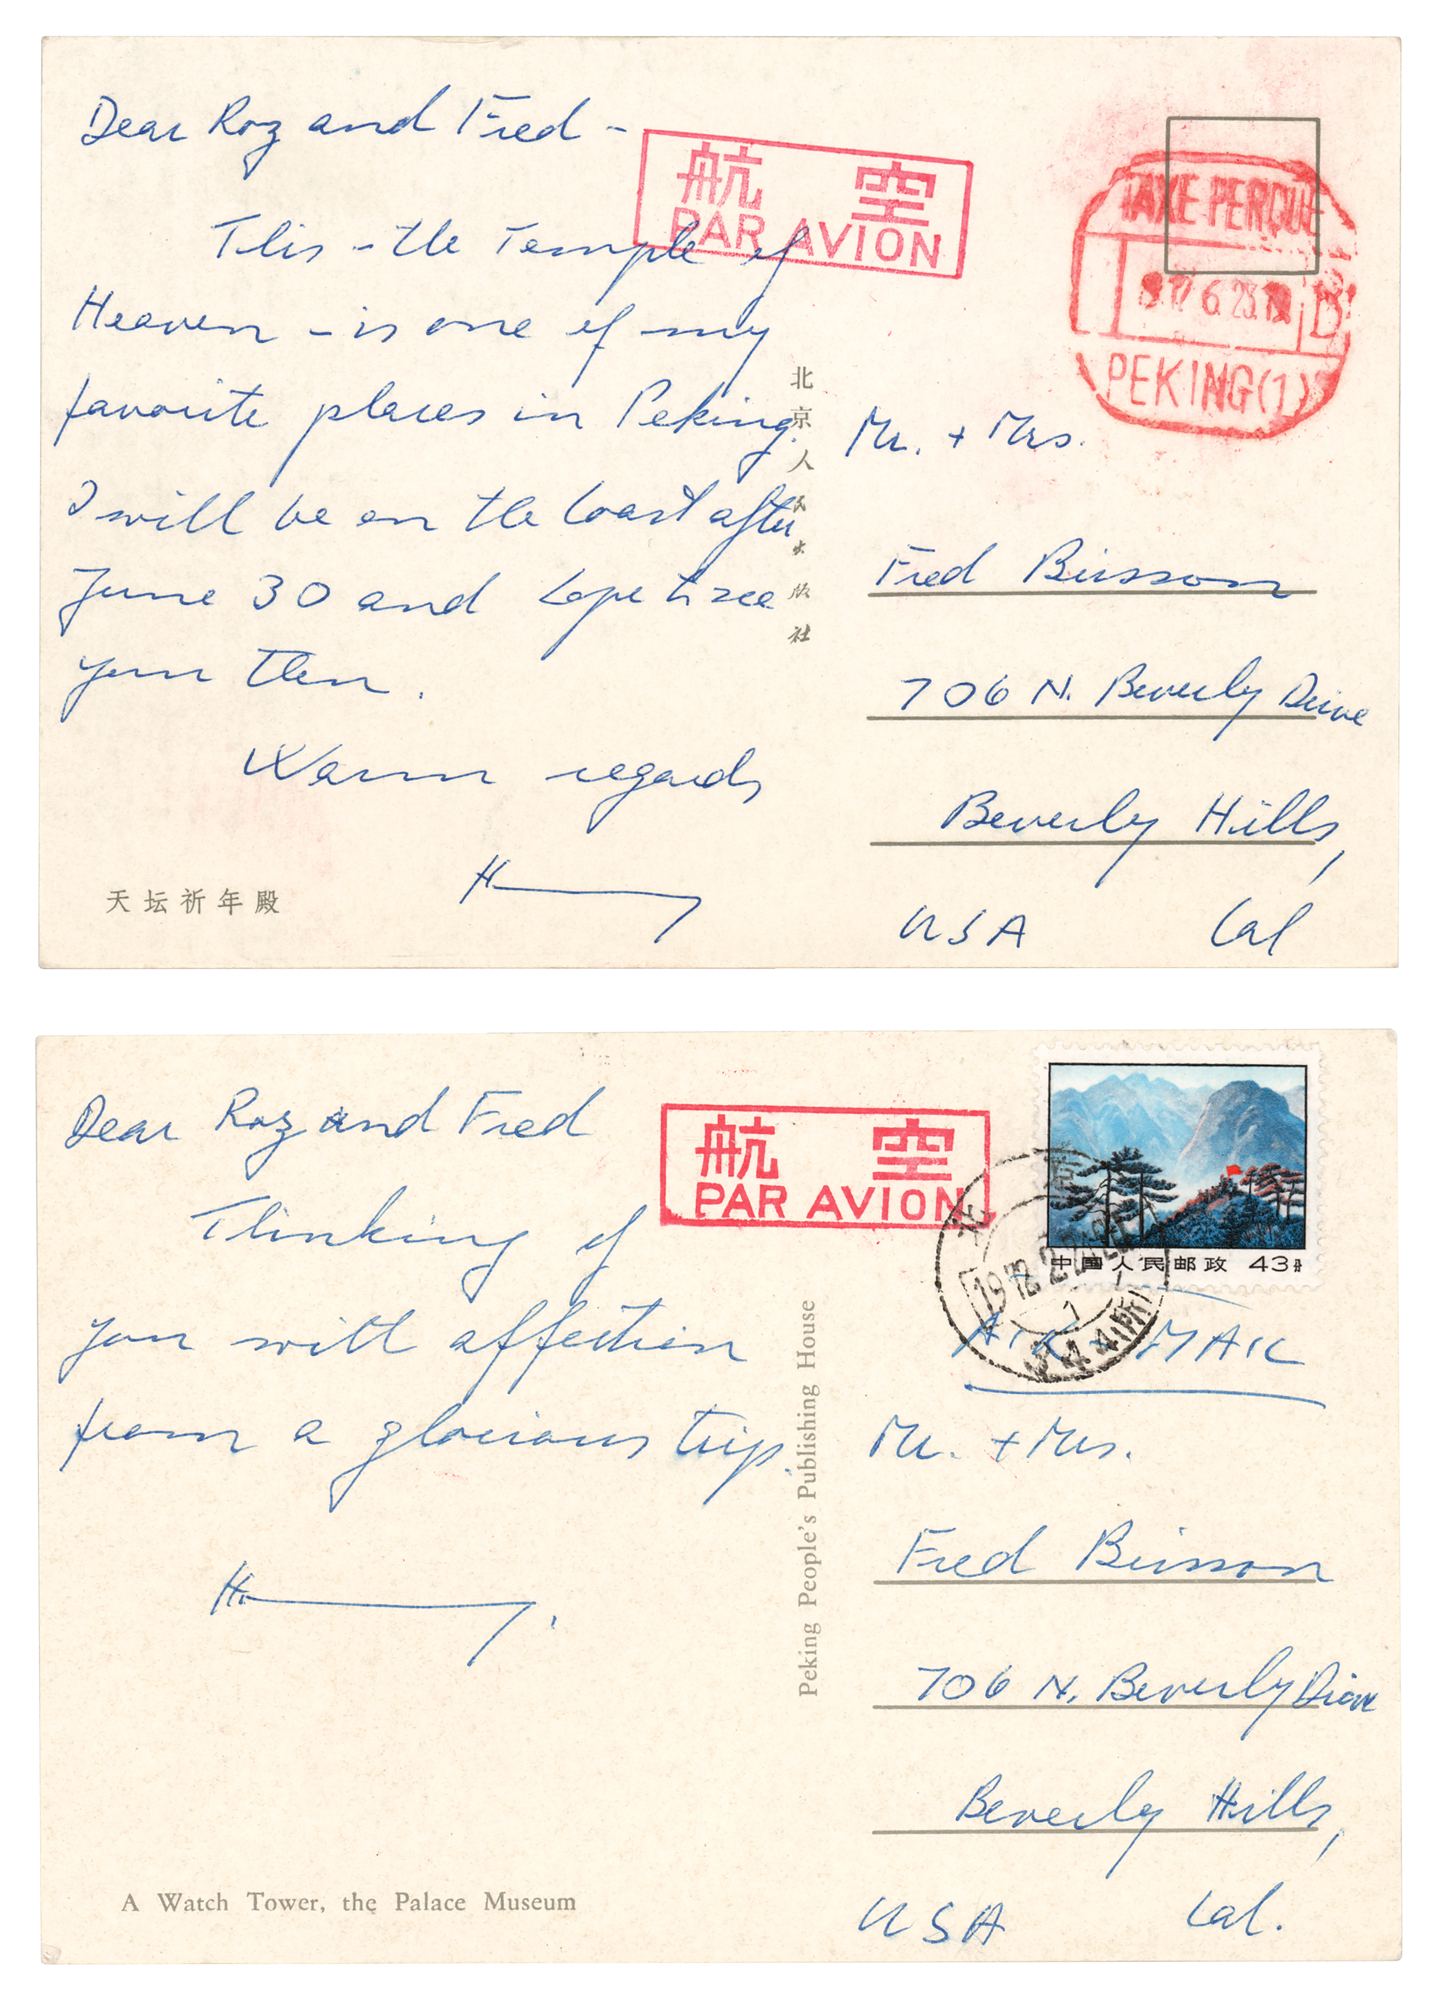 Dear Roz and Fred -
This - the Temple of
Heaven - is one of my
favorite places in Peking.
I will be on the Coast after
June 30 and hope to see
you then.
Warm regards
H
天坛祈年殿
航空
PAR AVION
北京人民出版社
TAXE PERÇUE
PEKING(1)
Mr. + Mrs.
Fred Brisson
706 N. Beverly Drive
Beverly Hills,
USA Cal
Dear Roz and Fred
Thinking of
you with affection
from a glorious trip.
H
A Watch Tower, the Palace Museum
航空
PAR AVION
Peking People's Publishing House
中国人民邮政 43分
北京
1972
AIR MAIL
Mr. + Mrs.
Fred Brisson
706 N. Beverly Drive
Beverly Hills,
USA Cal.